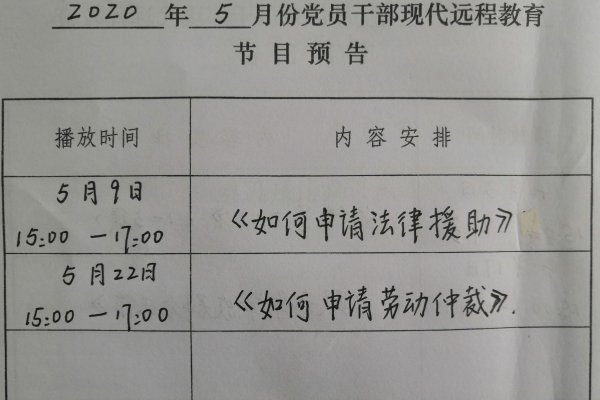 2020 年 5 月份党员干部现代远程教育
节目预告
播放时间
内容安排
5月9日
15:00 —17:00
《如何申请法律援助》
5月22日
15:00 —17:00
《如何申请劳动仲裁》.